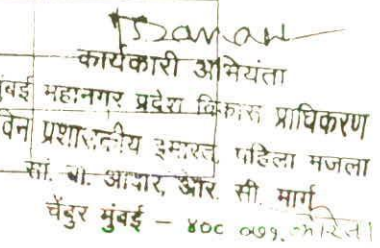 कार्यकारी अभियंता
मुंबई महानगर प्रदेश विकास प्राधिकरण
प्रशासकीय इमारत, पहिला मजला
सां. बा. आवार, आर. सी. मार्ग,
चेंबुर मुंबई – ४०० ०७१.